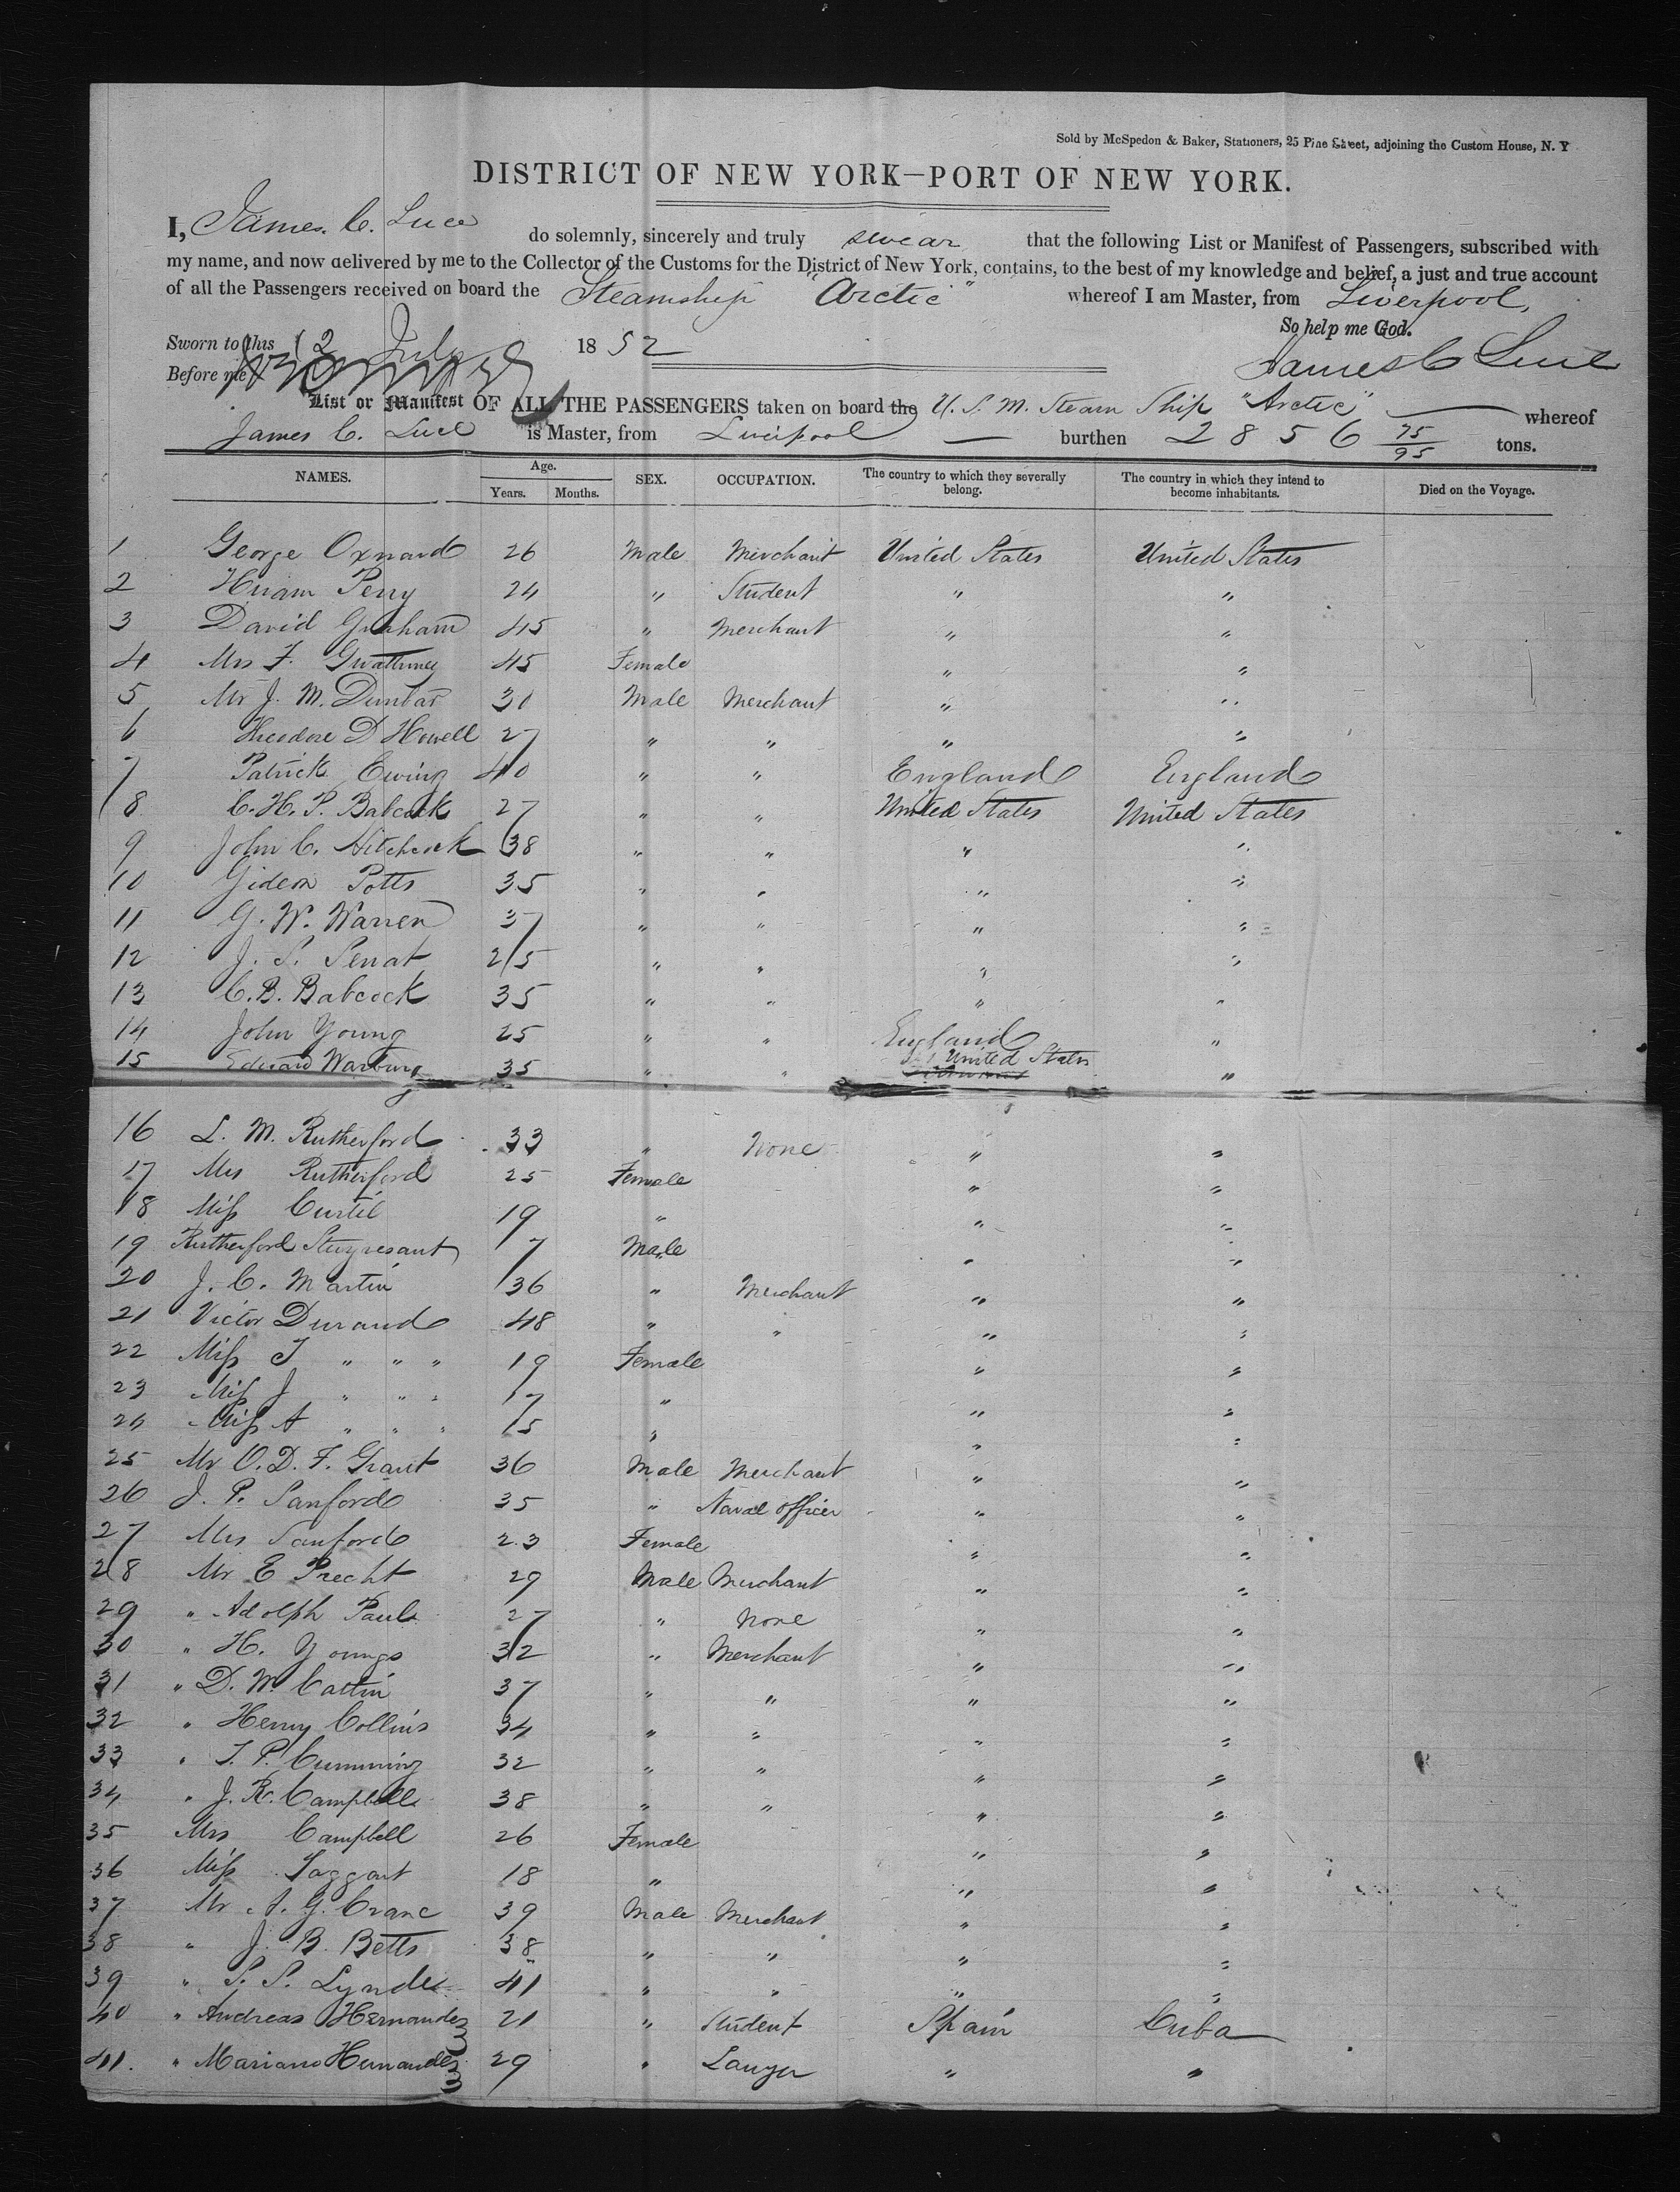 Sold by McSpedon & Baker, Stationers, 25 Pine Street, adjoining the Custom House, N. Y
DISTRICT OF NEW YORK—PORT OF NEW YORK.
I, James. C. Luce do solemnly, sincerely and truly swear that the following List or Manifest of Passengers, subscribed with
my name, and now delivered by me to the Collector of the Customs for the District of New York, contains, to the best of my knowledge and belief, a just and true account
of all the Passengers received on board the Steamship "Arctic" whereof I am Master, from Liverpool,
So help me God.
Sworn to this 12 July 1852
James C Luce
Before me
List or Manifest OF ALL THE PASSENGERS taken on board the U. S. M. Steam Ship "Arctic" — whereof
James C. Luce is Master, from Liverpool — burthen 2856 75/95 tons.
NAMES. Age. Years. Months. SEX. OCCUPATION. The country to which they severally belong. The country in which they intend to become inhabitants. Died on the Voyage.
1 George Oxnard 26 Male Merchant United States United States
2 Hiram Perry 24 " Student " "
3 David Graham 45 " Merchant " "
4 Mrs F. Gwathmey 45 Female " "
5 Mr J. M. Dunbar 30 Male Merchant " "
6 Theodore D Howell 27 " " " "
7 Patrick Ewing 40 " " England England
8 C. H. P. Babcock 27 " " United States United States
9 John C. Hitchcock 38 " " " "
10 Gideon Potts 35 " " " "
11 G. W. Warren 37 " " " "
12 J. S. Serrat 25 " " " "
13 C. B. Babcock 35 " " " "
14 John Young 25 " " England "
15 Edward Warburg 35 " " United States "
16 L. M. Rutherford 33 " None " "
17 Mrs Rutherford 25 Female " "
18 Miss 19 " " "
19 Rutherford Stuyvesant 7 Male " "
20 J. C. Martin 36 " Merchant " "
21 Victor Durand 48 " " " "
22 Miss J " " " 19 Female " "
23 Miss J " " " 17 " " "
24 Miss A " " " 15 " " "
25 Mr O. D. F. Grant 36 Male Merchant " "
26 J. P. Sanford 35 " Naval officer " "
27 Mrs Sanford 23 Female " "
28 Mr E Precht 29 Male Merchant " "
29 " Adolph Pauls 27 " None " "
30 " H. Youngs 32 " Merchant " "
31 " D. W. Cattin 37 " " " "
32 " Henry Collins 34 " " " "
33 " T. P. Cumming 32 " " " "
34 " J. R. Campbell 38 " " " "
35 Mrs Campbell 26 Female " "
36 Miss Taggart 18 " " "
37 Mr A. G. Crane 39 Male Merchant " "
38 " J. B. Betts 38 " " " "
39 " S. S. Lynde 41 " " " "
40 " Andreas Hernandez 21 " Student Spain Cuba
41. " Mariano Hernandez 29 " Lawyer " "